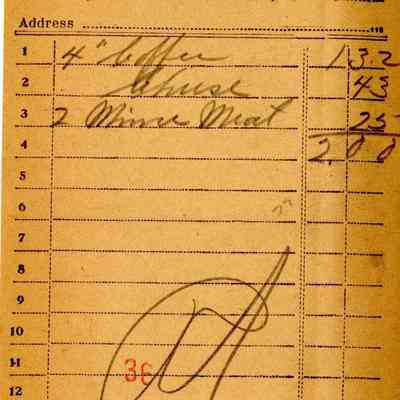 Address
1 4# Coffee 1 32
2 Cheese 43
3 2 Mince Meat 25
4 2.00
5
6
7
8
9
10
11
36
12